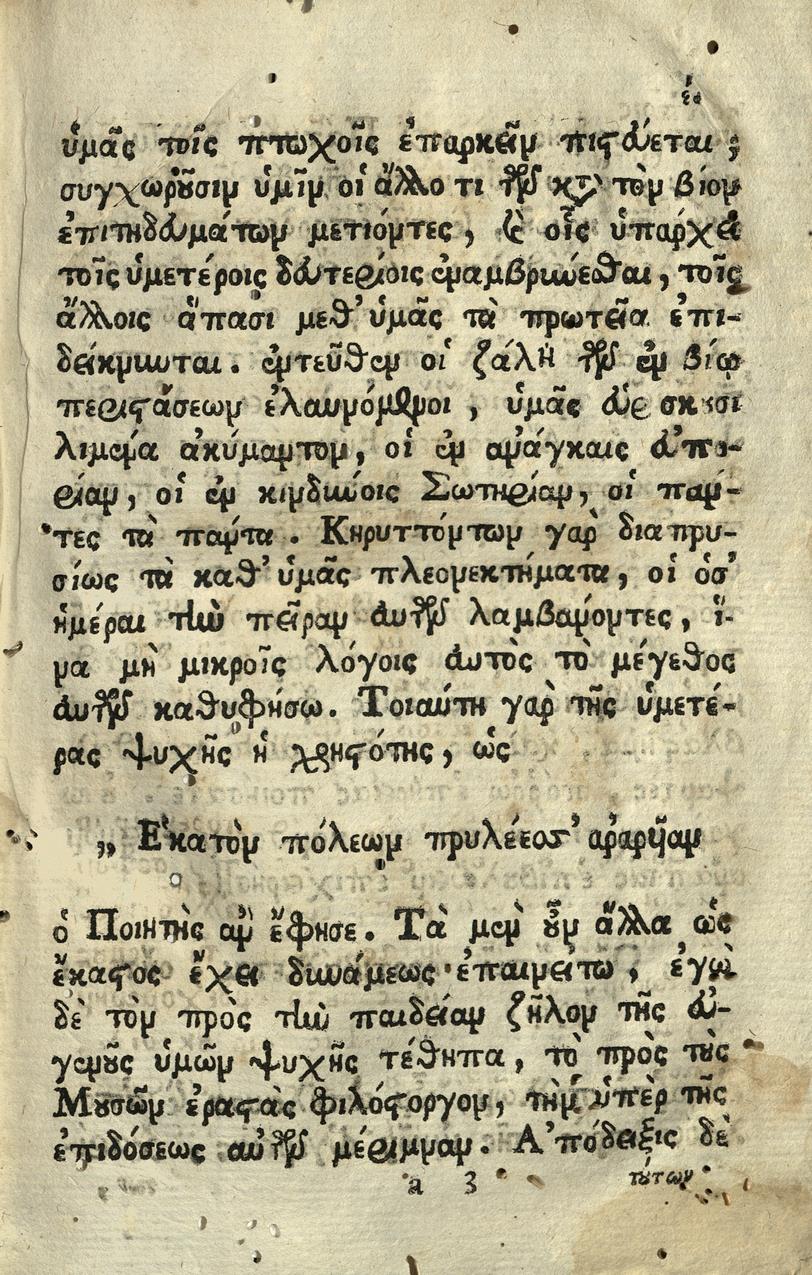 ε΄
ὑμᾶς τοῖς πτωχοῖς ἐπαρκεῖν πιςεύεται;
συγχωροῦσιν ὑμῖν οἱ ἄλλο τι τῶν κατὰ τὸν βίον
ἐπιτηδευμάτων μετιόντες, ἐξ οἷς ὑπάρχει
τοῖς ὑμετέροις δευτερείοις ἐναμβρυύεσθαι, τοῖς
ἄλλοις ἅπασι μεθ' ὑμᾶς τὰ πρωτεῖα ἐπι-
δείκνυνται. ἐντεῦθεν οἱ ζάλῃ τῶν ἐν βίῳ
περιςάσεων ἐλαυνόμενοι, ὑμᾶς εὑρίσκουσι
λιμένα ἀκύμαντον, οἱ ἐν ἀνάγκαις εὐπο-
ρίαν, οἱ ἐν κινδύνοις Σωτηρίαν, οἱ πάν-
τες τὰ πάντα. Κηρυττόντων γὰρ διαπρυ-
σίως τὰ καθ' ὑμᾶς πλεονεκτήματα, οἱ ὁσ'
ἡμέραι τὴν πεῖραν αὐτῶν λαμβάνοντες, ἵ-
να μὴ μικροῖς λόγοις αὐτὸς τὸ μέγεθος
αὐτῶν καθυφήσω. Τοιαύτη γὰρ τῆς ὑμετέ-
ρας ψυχῆς ἡ χρηςότης, ὡς
„ Ἑκατὸν πόλεων πρυλέεσσ' ἀραρυῖαν
ὁ Ποιητὴς ἂν ἔφησε. Τὰ μὲν οὖν ἄλλα ὡς
ἕκαςος ἔχει δυνάμεως ἐπαινείτω, ἐγὼ
δὲ τὸν πρὸς τὴν παιδείαν ζῆλον τῆς εὐ-
γενοῦς ὑμῶν ψυχῆς τέθηπα, τὸ πρὸς τοὺς
Μουσῶν ἐραςὰς φιλόςοργον, τὴν ὑπὲρ τῆς
ἐπιδόσεως αὐτῶν μέριμναν. Ἀπόδειξις δὲ
a 3 τούτων